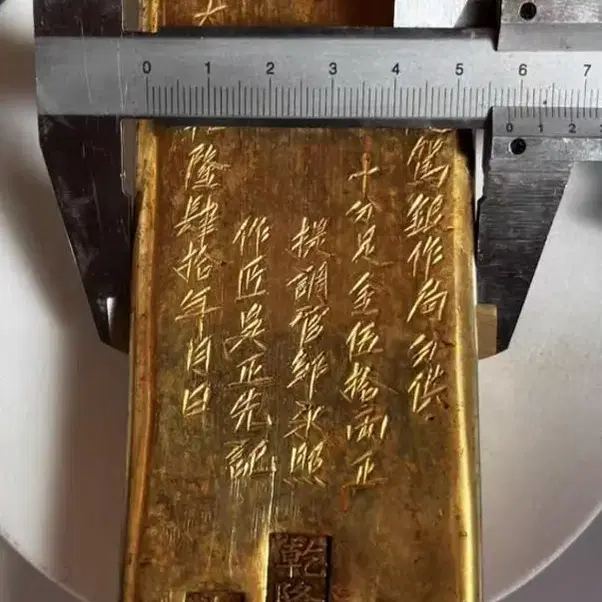 0 1 2 3 4 5 6 7
0 1 2
駕銀作局分供
十分足金伍拾兩正
提調官 永照
作匠吳正先記
大
隆肆拾年月日
乾隆